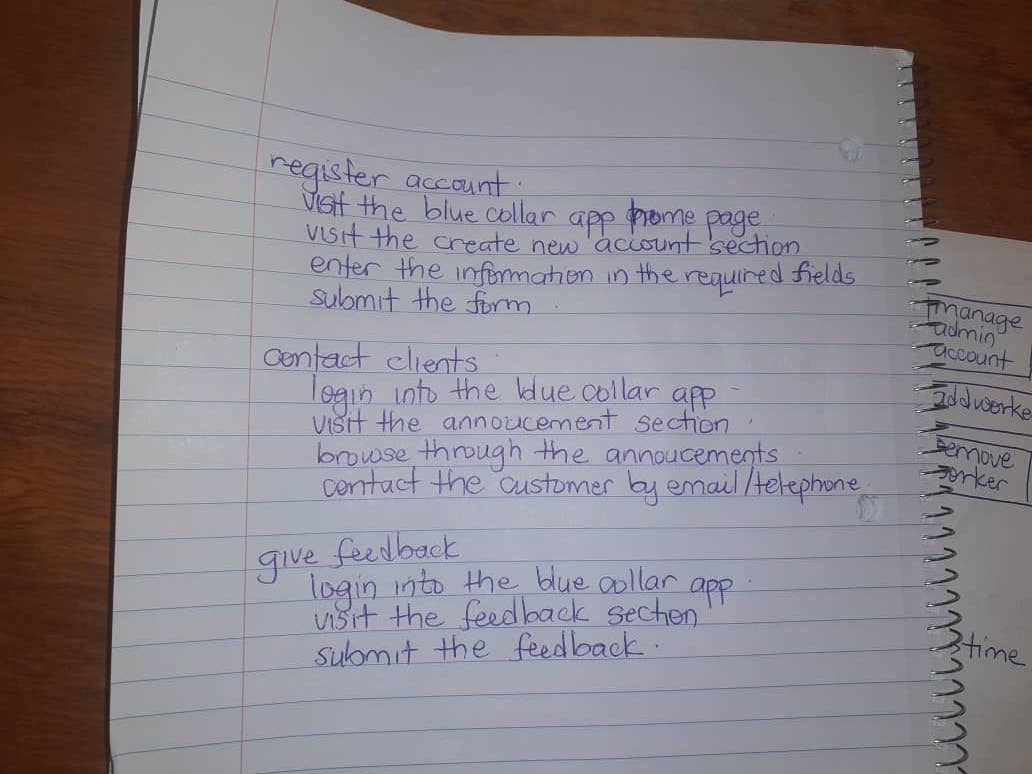 register account.
visit the blue collar app home page.
visit the create new account section
enter the information in the required fields
submit the form.
contact clients
login into the blue collar app
visit the annoucement section.
browse through the annoucements
contact the customer by email/telephone.
give feedback
login into the blue collar app.
visit the feedback section
submit the feedback.
manage
admin
account
add worke
remove
worker
time